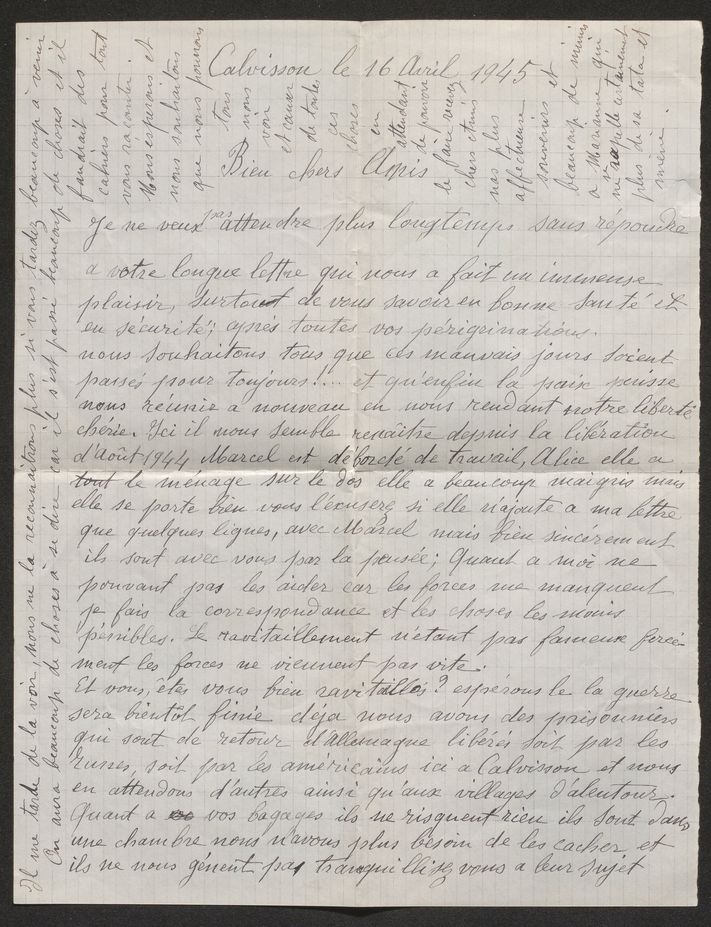 Calvisson le 16 Avril 1945
Bien chers Amis
Je ne veux pas attendre plus longtemps sans répondre
a votre longue lettre qui nous a fait un immense
plaisir, surtout de vous savoir en bonne santé et
en sécurité; aprés toutes vos périgrinations.
nous souhaitons tous que ces mauvais jours soient
passés pour toujours!... et qu'enfin la paix puisse
nous réunir a nouveau en nous rendant notre liberté
chérie. Ici il nous semble renaître depuis la libération
d'Août 1944 Marcel est débordé de travail, Alice elle a
tout le ménage sur le dos elle a beaucoup maigris mais
elle se porte bien vous l'éxuserez si elle n'ajoute a ma lettre
que quelques lignes, avec Marcel mais bien sincérement
ils sont avec vous par la pensée; Quant a moi ne
pouvant pas les aider car les forces me manquent
je fais la correspondance et les choses les moins
pénibles. Le ravitaillement n'étant pas fameux forcé-
ment les forces ne viennent pas vite.
Et vous, êtes vous bien ravitaillés? espérons le la guerre
sera bientôt finie déja nous avons des prisonniers
qui sont de retour d'Allemagne libérés soit par les
russes, soit par les américains ici a Calvisson et nous
en attendons d'autres ainsi qu'aux villages d'alentour.
Quant a vos bagages ils ne risquent rien ils sont dans
une chambre nous n'avons plus besoin de les cacher et
ils ne nous gênent pas tranquillisez vous a leur sujet
Il me tarde de la voir, nous ne la reconnaîtrons plus si vous tardez beaucoup à venir
On aura beaucoup de choses à se dire car il s'est passé beaucoup de choses et il
faudrait des
cahiers pour tout
vous raconter.
Nous espérons et
nous souhaitons
que nous pourrons
tous
nous
voir
et causer
de toutes
ces
choses
en
attendant
de pouvoir
le faire recevez
chers amis
nos plus
affectueux
souvenirs et
beaucoup de mimis
a Marianne qui
ne se rappelle certainement
plus di sa tata et
mémé